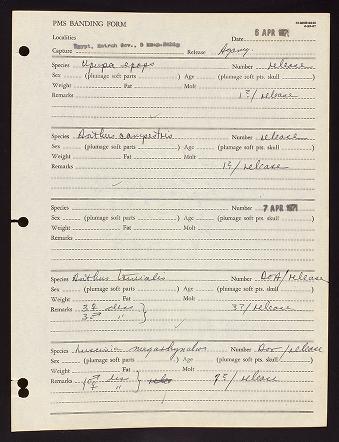 PMS BANDING FORM
Localities
Date 6 APR 1971
Egypt, Matrah Gov., 5
Capture Release Agamy
Species Upupa epops Number release
Sex (plumage soft parts ) Age (plumage soft pts. skull )
Weight Fat Molt
Remarks 1 /release
Species Anthus campestris Number release
Sex (plumage soft parts ) Age (plumage soft pts. skull )
Weight Fat Molt
Remarks 1 /release
Species Number 7 APR 1971
Sex (plumage soft parts ) Age (plumage soft pts. skull )
Weight Fat Molt
Remarks
Species Anthus trivialis Number DOA/release
Sex (plumage soft parts ) Age (plumage soft pts. skull )
Weight Fat Molt
Remarks 3♀ 3 /release
3♂ "
Species Luscinia megarhynchos Number /release
Sex (plumage soft parts ) Age (plumage soft pts. skull )
Weight Fat Molt
Remarks 9 /release